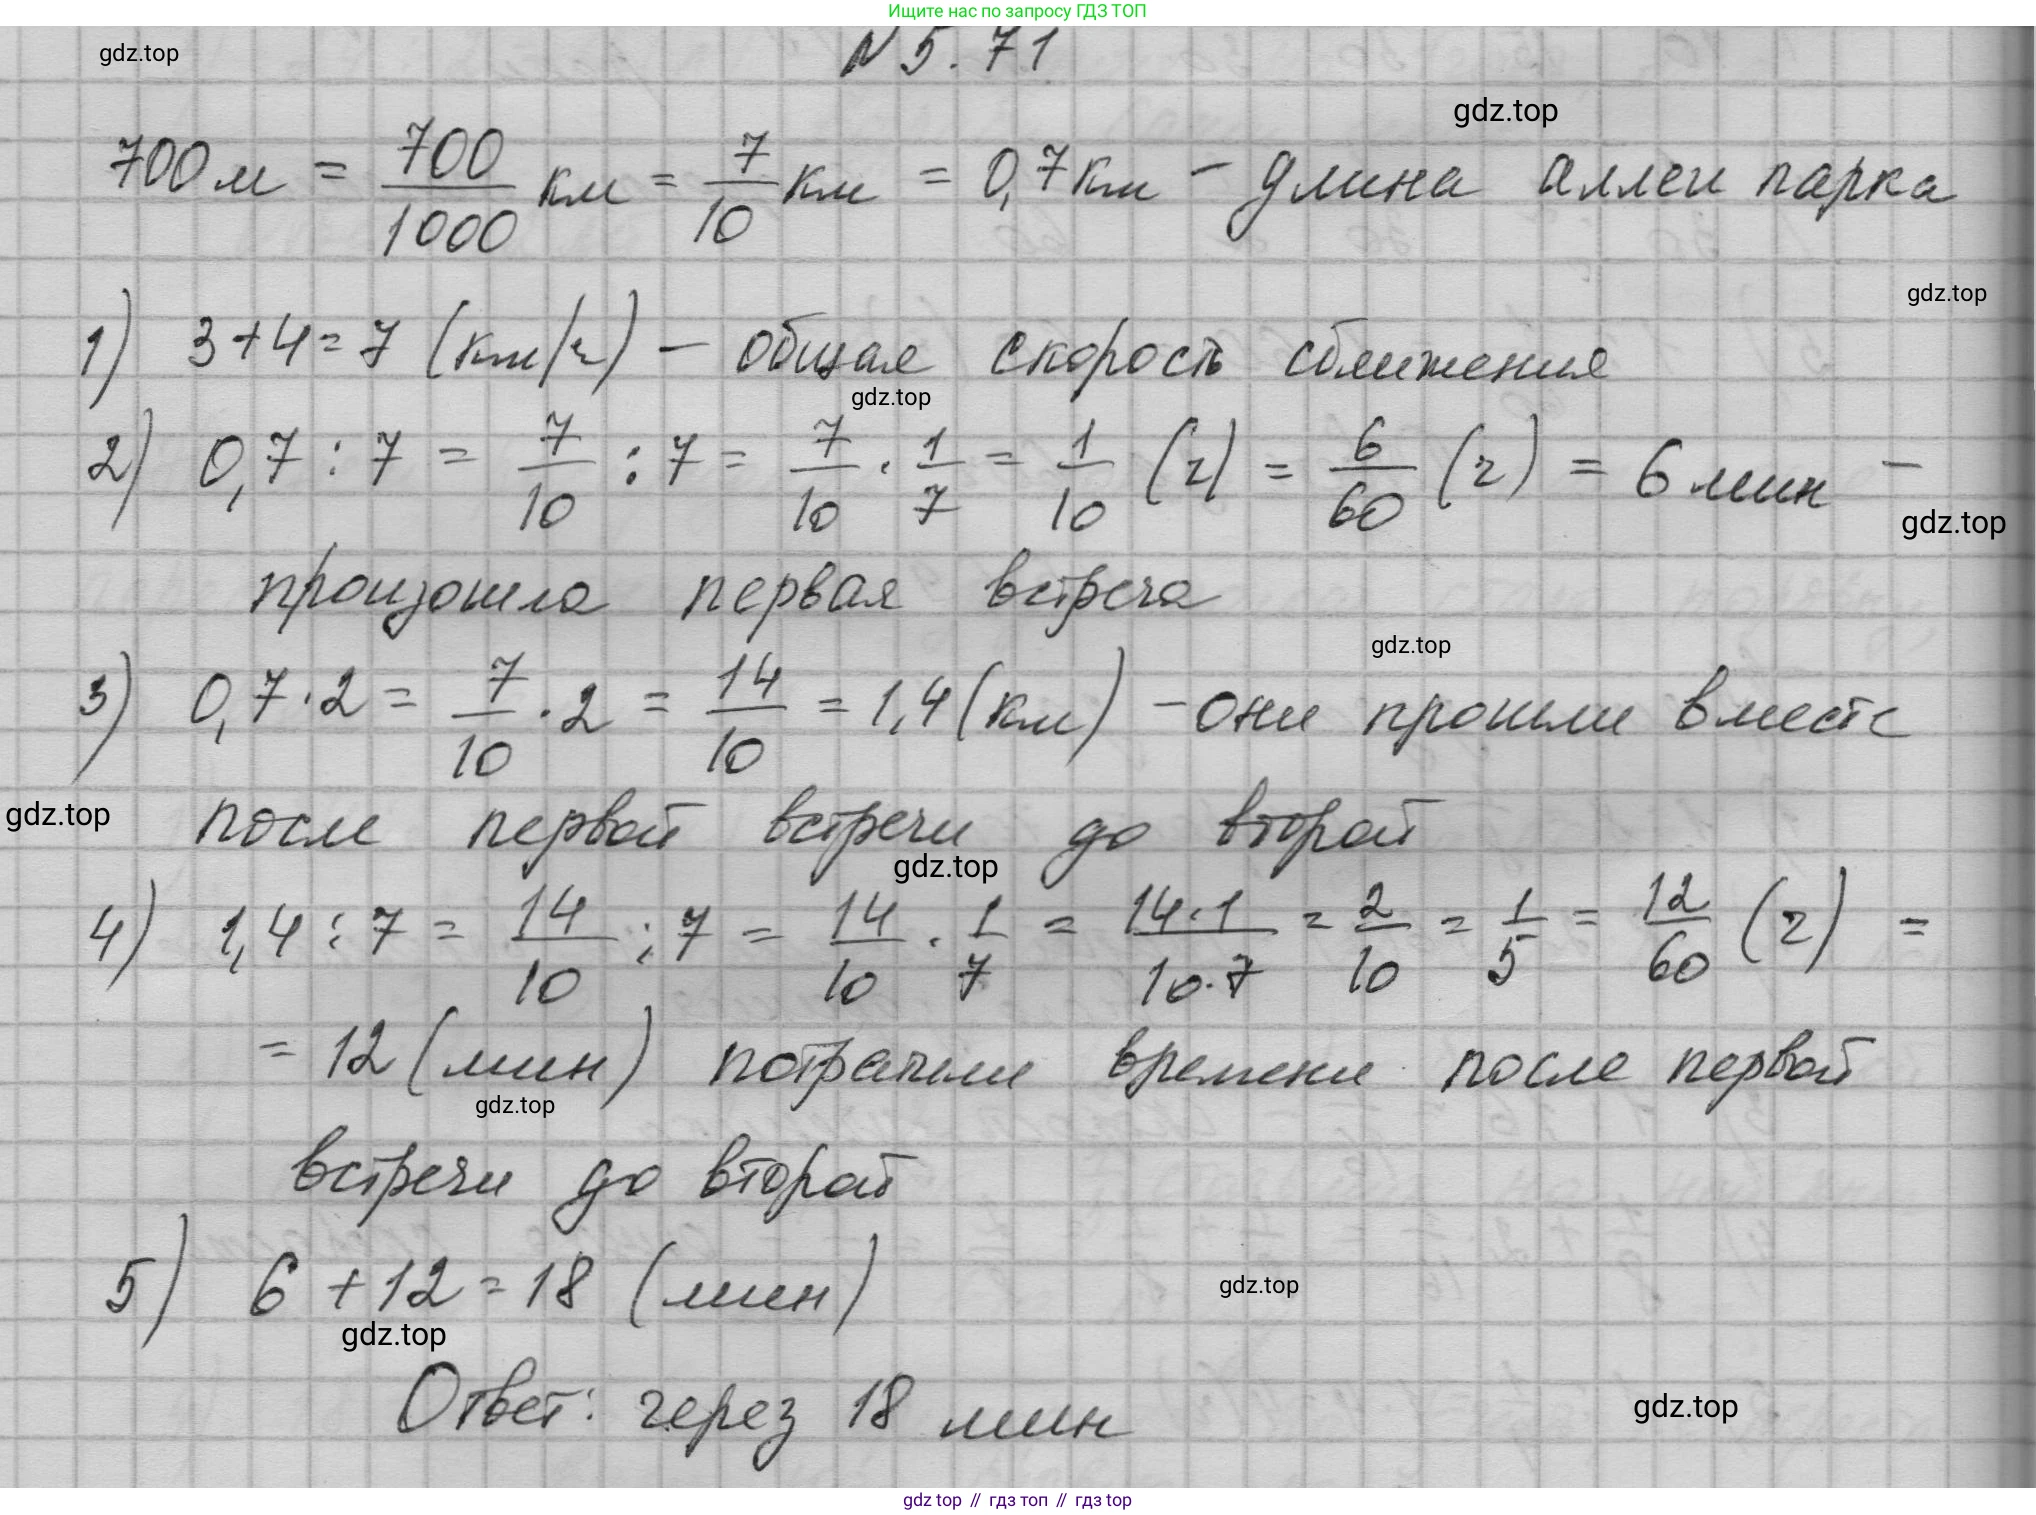 Ищите нас по запросу ГДЗ ТОП
N 5.71
gdz.top
gdz.top
700 м = 700/1000 км = 7/10 км = 0,7 км - длина аллеи парка
gdz.top
1) 3+4=7 (км/ч) - общая скорость сближения
gdz.top
2) 0,7 : 7 = 7/10 : 7 = 7/10 · 1/7 = 1/10 (ч) = 6/60 (ч) = 6 мин -
gdz.top
произошла первая встреча
gdz.top
3) 0,7·2 = 7/10 · 2 = 14/10 = 1,4 (км) - они прошли вместе
gdz.top
после первой встречи до второй
gdz.top
4) 1,4 : 7 = 14/10 : 7 = 14/10 · 1/7 = 14·1/10·7 = 2/10 = 1/5 = 12/60 (ч) =
= 12 (мин) потратили времени после первой
gdz.top
встречи до второй
5) 6 + 12 = 18 (мин)
gdz.top
gdz.top
Ответ: через 18 мин
gdz.top
gdz top // гдз топ // гдз top